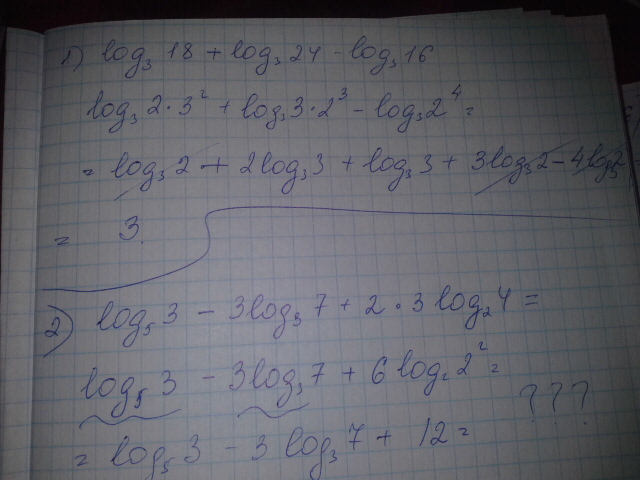 1) log₃ 18 + log₃ 24 - log₃ 16
log₃ 2·3² + log₃ 3·2³ - log₃ 2⁴ =
= log₃ 2 + 2log₃ 3 + log₃ 3 + 3log₃ 2 - 4log₃ 2
= 3.
2) log₅ 3 - 3log₃ 7 + 2·3 log₂ 4 =
log₅ 3 - 3log₃ 7 + 6 log₂ 2² =
= log₅ 3 - 3 log₃ 7 + 12 = ???